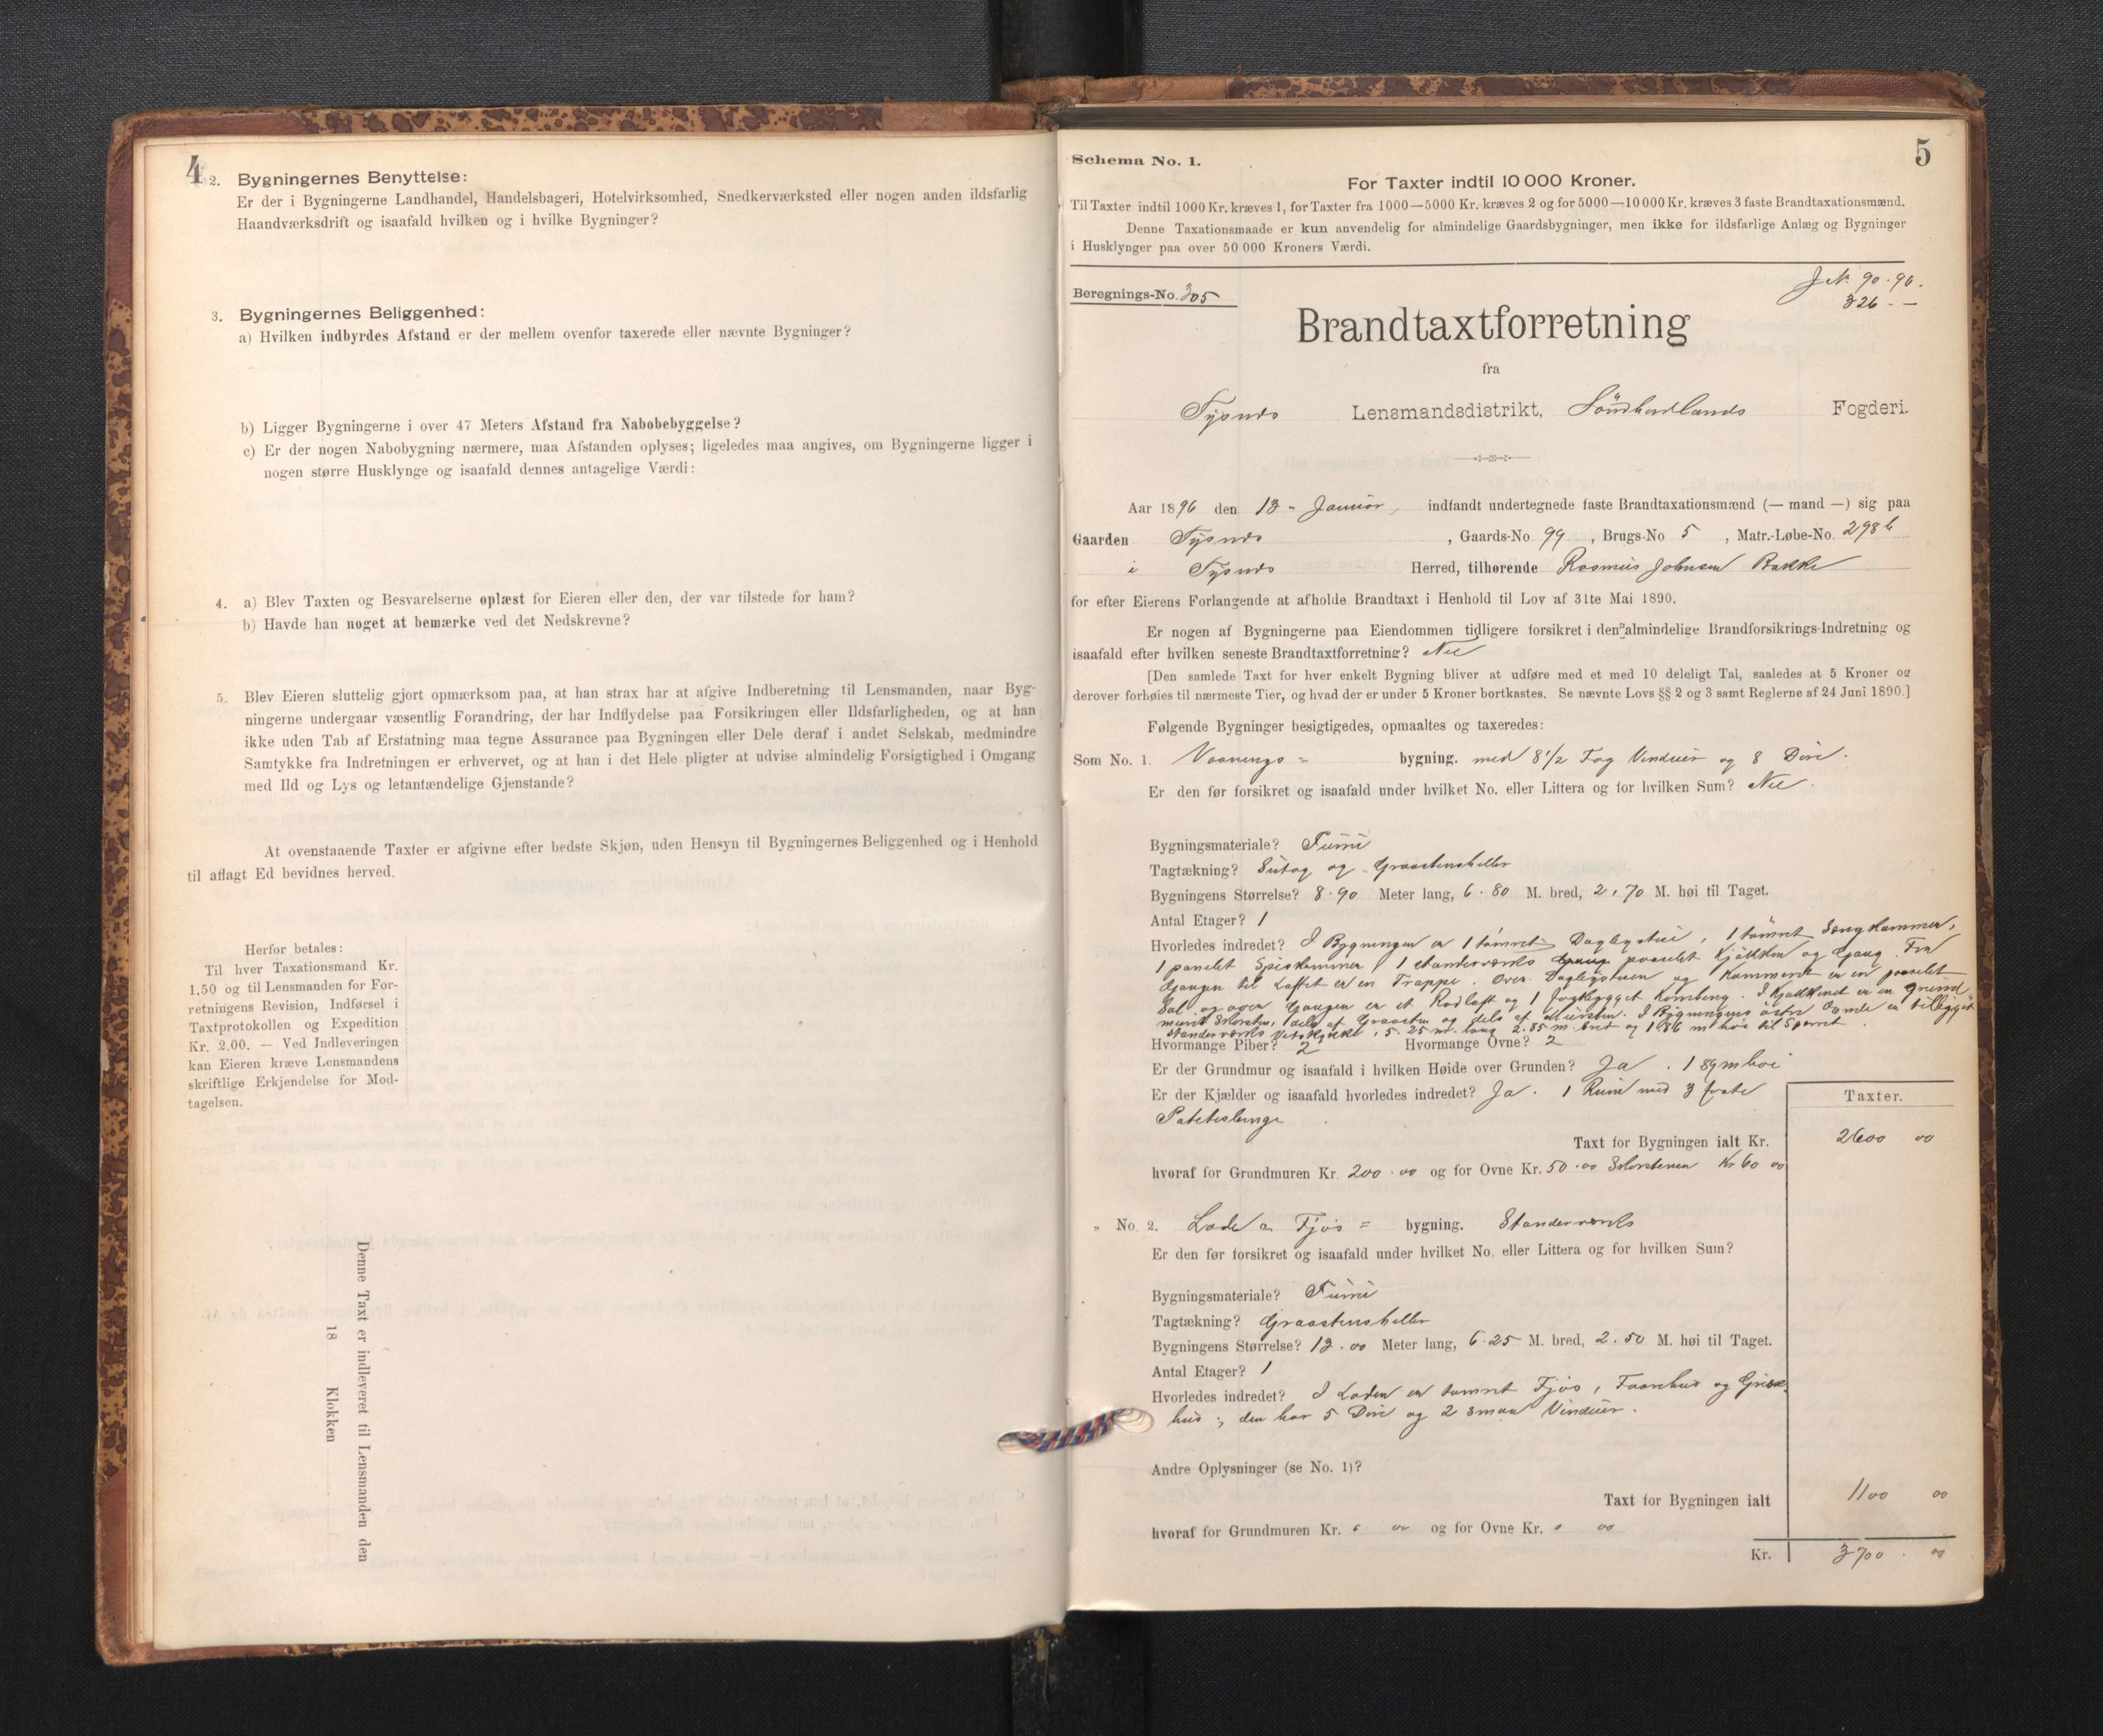 4
2. Bygningernes Benyttelse:
Er der i Bygningerne Landhandel, Handelsbageri, Hotelvirksomhed, Snedkerværksted eller nogen anden ildsfarlig
Haandværksdrift og isaafald hvilken og i hvilke Bygninger?
3. Bygningernes Beliggenhed:
a) Hvilken indbyrdes Afstand er der mellem ovenfor taxerede eller nævnte Bygninger?
b) Ligger Bygningerne i over 47 Meters Afstand fra Nabobebyggelse?
c) Er der nogen Nabobygning nærmere, maa Afstanden oplyses; ligeledes maa angives, om Bygningerne ligger i
nogen større Husklynge og isaafald dennes antagelige Værdi:
4. a) Blev Taxten og Besvarelserne oplæst for Eieren eller den, der var tilstede for ham?
b) Havde han noget at bemærke ved det Nedskrevne?
5. Blev Eieren sluttelig gjort opmærksom paa, at han strax har at afgive Indberetning til Lensmanden, naar Byg-
ningerne undergaar væsentlig Forandring, der har Indflydelse paa Forsikringen eller Ildsfarligheden, og at han
ikke uden Tab af Erstatning maa tegne Assurance paa Bygningen eller Dele deraf i andet Selskab, medmindre
Samtykke fra Indretningen er erhvervet, og at han i det Hele pligter at udvise almindelig Forsigtighed i Omgang
med Ild og Lys og letantændelige Gjenstande?
At ovenstaaende Taxter er afgivne efter bedste Skjøn, uden Hensyn til Bygningernes Beliggenhed og i Henhold
til aflagt Ed bevidnes herved.
Herfor betales:
Til hver Taxationsmand Kr.
1.50 og til Lensmanden for For-
retningens Revision, Indførsel i
Taxtprotokollen og Expedition
Kr. 2.00. — Ved Indleveringen
kan Eieren kræve Lensmandens
skriftlige Erkjendelse for Mod-
tagelsen.
Denne Taxt er indleveret til Lensmanden den
18 Klokken
5
Schema No. 1.
For Taxter indtil 10 000 Kroner.
Til Taxter indtil 1000 Kr. kræves 1, for Taxter fra 1000—5000 Kr. kræves 2 og for 5000—10 000 Kr. kræves 3 faste Brandtaxationsmænd.
Denne Taxationsmaade er kun anvendelig for almindelige Gaardsbygninger, men ikke for ildsfarlige Anlæg og Bygninger
i Husklynger paa over 50 000 Kroners Værdi.
90.96.
326 - —
Beregnings-No. 305
Brandtaxtforretning
fra
Tysnes Lensmandsdistrikt, Söndhordlands Fogderi.
Aar 1896 den 13 - Januar, indfandt undertegnede faste Brandtaxationsmænd (— mand —) sig paa
Gaarden Tysnes, Gaards-No 99, Brugs-No 5, Matr.-Løbe-No. 298 b
i Tysnes Herred, tilhørende Rasmus Johnsen Bakke
for efter Eierens Forlangende at afholde Brandtaxt i Henhold til Lov af 31te Mai 1890.
Er nogen af Bygningerne paa Eiendommen tidligere forsikret i den almindelige Brandforsikrings-Indretning og
isaafald efter hvilken seneste Brandtaxtforretning? Nei
[Den samlede Taxt for hver enkelt Bygning bliver at udføre med et med 10 deleligt Tal, saaledes at 5 Kroner og
derover forhøies til nærmeste Tier, og hvad der er under 5 Kroner bortkastes. Se nævnte Lovs §§ 2 og 3 samt Reglerne af 24 Juni 1890.]
Følgende Bygninger besigtigedes, opmaaltes og taxeredes:
Som No. 1. Vaanings - bygning. med 8 1/2 Fag Vinduer og 8 Döre.
Er den før forsikret og isaafald under hvilket No. eller Littera og for hvilken Sum? Nei.
Bygningsmateriale? Furu
Tagtækning? Sutag og Graastensheller
Bygningens Størrelse? 8.90 Meter lang, 6.80 M. bred, 2.70 M. høi til Taget.
Antal Etager? 1
Hvorledes indredet? I Bygningen er 1 tömret Dagligstue, 1 tömret Sengkammer,
1 panelet Spiskammer, 1 standerværks panelet Kjökken og Gang. Fra
Gangen til Loftet er en Trappe. Over Dagligstuen og Kammeret er en panelet
Sal og over Gangen er et Rodloft og 1 Fagbygget
muret Skorsten, dels af Graasten og dels af Mursten. I Bygningens östre Gavle er tilbygget
Standerværks Vedskykke, 5.25 m. lang 2.85 m. bred og 1.86 m höi til Sperret.
Hvormange Piber? 2 Hvormange Ovne? 2
Er der Grundmur og isaafald i hvilken Høide over Grunden? Ja. 1 89 m höi
Er der Kjælder og isaafald hvorledes indredet? Ja. 1 Rum med 3 faste
Potetesbinge
Taxter.
Taxt for Bygningen ialt Kr. 2600 00
hvoraf for Grundmuren Kr. 200.00 og for Ovne Kr. 50.00 Skorstenen Kr 60 00
„ No. 2. Lade o Fjös = bygning. Standerværks
Er den før forsikret og isaafald under hvilket No. eller Littera og for hvilken Sum?
Bygningsmateriale? Furu
Tagtækning? Graastensheller
Bygningens Størrelse? 13.00 Meter lang, 6.25 M. bred, 2.50 M. høi til Taget.
Antal Etager? 1
Hvorledes indredet? I Laden er tömret Fjös, Faarehus og Grise-
hus; den har 5 Döre og 2 smaa Vinduer.
Andre Oplysninger (se No. 1)?
Taxt for Bygningen ialt 1100 00
hvoraf for Grundmuren Kr. 0 00 og for Ovne Kr. 0 00
Kr. 3700 . 00